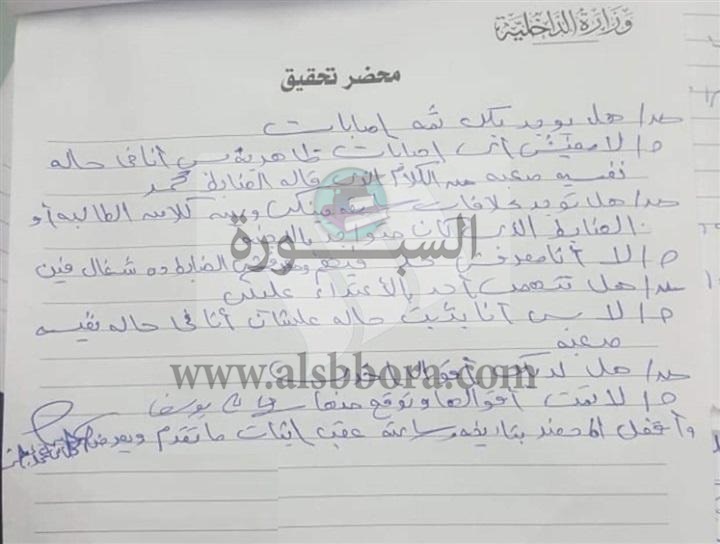 وزارة الداخلية
محضر تحقيق
س/ هل يوجد بكي ثمة إصابات
ج/ لا مفيش أي إصابات ظاهرية بس أنا في حاله
نفسيه صعبه من الكلام الذي قاله الضابط محمد
س/ هل توجد خلافات بينك وبين كلا من الطالبه أو
الضابط الذي كان متواجد بالموقع
ج/ لا أنا معرفش الضابط ده شغال فين
س/ هل تتهمي أحد بالأعتداء عليكي
ج/ لا بس أنا بثبت حاله علشان أنا في حاله نفيسه
صعبه
س/ هل لديكي أقوال أخرى
ج/ لا تمت أقوالها وتوقع منها
وأقفل المحضر بتاريخه وساعته عقب إثبات ما تقدم ويعرض
السبورة
www.alsbbora.com